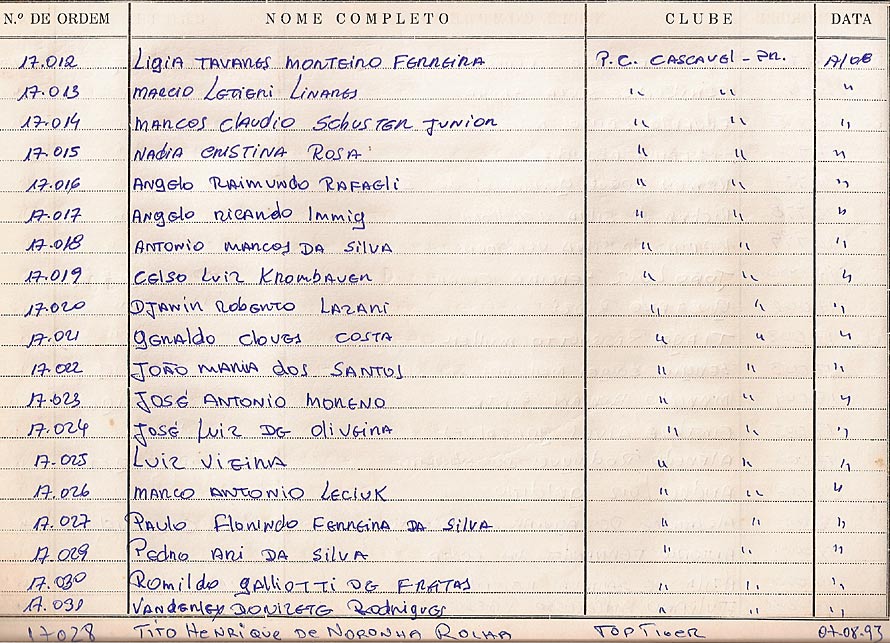 N.º DE ORDEM NOME COMPLETO CLUBE DATA
17.012 Ligia TAVARES MONTEIRO FERREIRA P.C. CASCAVEL - PR. 17/08
17.013 MARCIO LETIERI LINARES " " "
17.014 MARCOS Claudio SCHUSTER JUNIOR " " "
17.015 NADIA CRISTINA ROSA " " "
17.016 ANGELO RAIMUNDO RAFAGLI " " "
17.017 ANGELO RICARDO Immig " " "
17.018 ANTONIO MARCOS DA SILVA " " "
17.019 CELSO LUIZ KROMBAUER " " "
17.020 DJANIR ROBERTO LAZARI " " "
17.021 GERALDO CLOVES COSTA " " "
17.022 JOÃO MARIA DOS SANTOS " " "
17.023 JOSÉ ANTONIO MORENO " " "
17.024 JOSÉ LUIZ DE OLIVEIRA " " "
17.025 LUIZ VIEIRA " " "
17.026 MARCO ANTONIO LECIUK " " "
17.027 PAULO FLORINDO FERREIRA DA SILVA " " "
17.029 PEDRO ARI DA SILVA " " "
17.030 ROMILDO GALLIOTTI DE FREITAS " " "
17.031 DONIZETE RODRIGUES " " "
17028 TITO HENRIQUE DE NORONHA ROCHA TOP TIGER 07-08-97